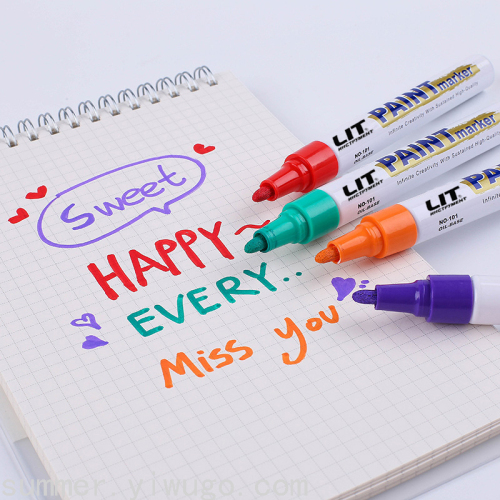 Sweet
HAPPY~
EVERY..
Miss you
LIT PAINT marker
Infinite Creativity With Sustained High-Quality
NO-101
OIL-BASE
LIT PAINT marker
Infinite Creativity With Sustained High-Quality
NO-101
OIL-BASE
LIT PA
Infinite Creativity
NO-101
OIL-BASE
summer.yiwugo.com